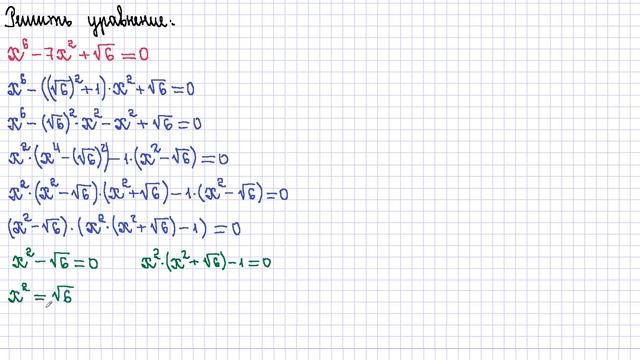 Решить уравнение:
x⁶ − 7x² + √6 = 0
x⁶ − ((√6)² + 1) · x² + √6 = 0
x⁶ − (√6)² · x² − x² + √6 = 0
x² · (x⁴ − (√6)²) − 1 · (x² − √6) = 0
x² · (x² − √6) · (x² + √6) − 1 · (x² − √6) = 0
(x² − √6) · (x² · (x² + √6) − 1) = 0
x² − √6 = 0 x² · (x² + √6) − 1 = 0
x² = √6